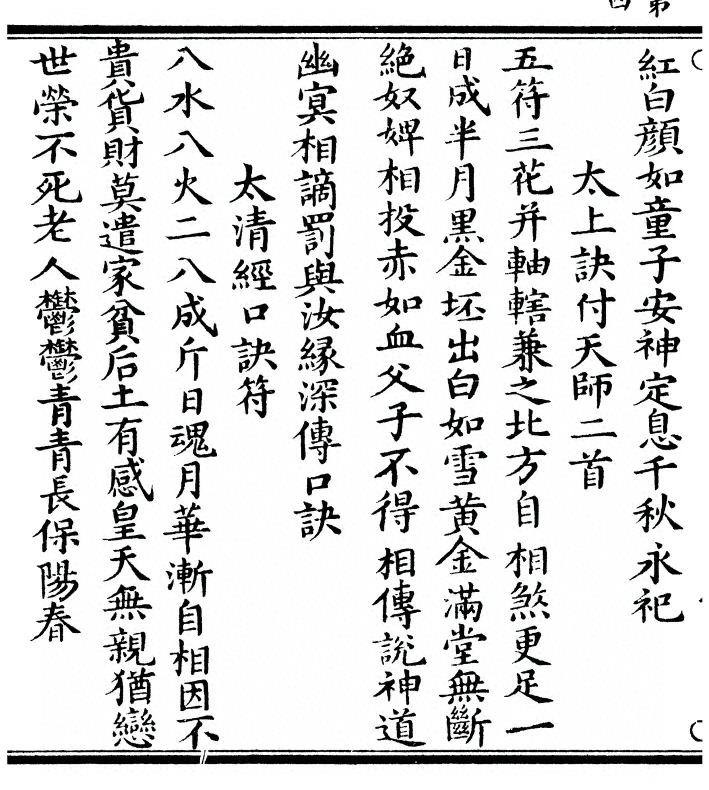 第
四
紅白顔如童子安神定息千秋永祀
太上訣付天師二首
五符三花并軸轄兼之北方自相煞更足一
日成半月黑金坯出白如雪黄金滿堂無斷
絕奴婢相投赤如血父子不得相傳說神道
幽冥相謫罰與汝緣深傳口訣
太清經口訣符
八水八火二八成斤日魂月華漸自相因不
貴貨財莫遣家貧后土有感皇天無親猶戀
世榮不死老人鬱鬱青青長保陽春